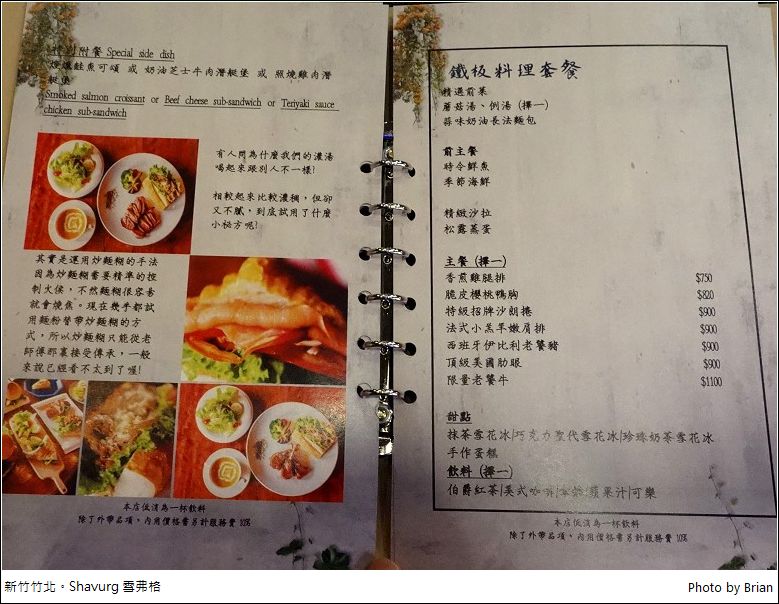 特別附餐 Special side dish
煙燻鮭魚可頌 或 奶油芝士牛肉潛艇堡 或 照燒雞肉潛
艇堡
Smoked salmon croissant or Beef cheese sub-sandwich or Teriyaki sauce
chicken sub-sandwich
有人問為什麼我們的濃湯
喝起來跟別人不一樣!
相較起來比較濃稠,但卻
又不膩,到底試用了什麼
小祕方呢?
其實是運用炒麵糊的手法
因為炒麵糊需要精準的控
制火侯,不然麵糊很容易
就會燒焦。現在幾乎都試
用麵粉替帶炒麵糊的方
式,所以炒麵糊只能從老
師傅那裏接受傳承,一般
來說已經看不太到了喔!
本店低消為一杯飲料
除了外帶品項,內用價格需另計服務費 10%
鐵板料理套餐
精選前菜
蘑菇湯、例湯 (擇一)
蒜味奶油長法麵包
前主餐
時令鮮魚
季節海鮮
精緻沙拉
松露蒸蛋
主餐 (擇一)
香煎雞腿排 $750
脆皮櫻桃鴨胸 $820
特級招牌沙朗捲 $900
法式小羔羊嫩肩排 $900
西班牙伊比利老饕豬 $900
頂級美國肋眼 $900
限量老饕牛 $1100
甜點
抹茶雪花冰|巧克力聖代雪花冰|珍珠奶茶雪花冰
手作蛋糕
飲料 (擇一)
伯爵紅茶|美式咖啡|拿鐵|蘋果汁|可樂
本店低消為一杯飲料
除了外帶品項,內用價格需另計服務費 10%
新竹竹北。Shavurg 雪弗格
Photo by Brian